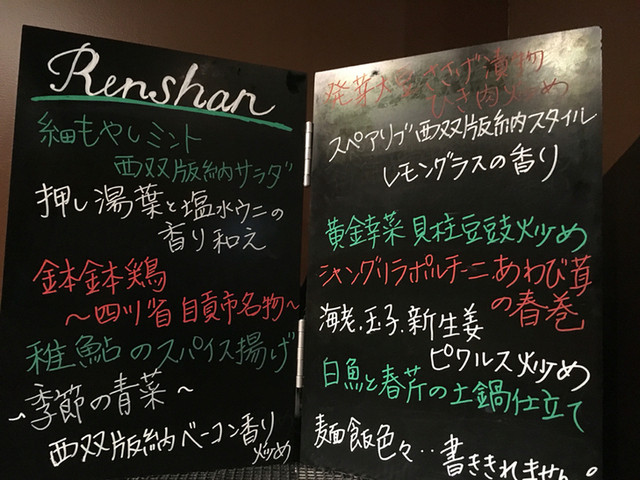 Renshan
細もやしミント
西双版納サラダ
押し湯葉と塩水ウニの
香り和え
鉢鉢鶏
～四川省自貢市名物～
稚鮎のスパイス揚げ
～季節の青菜～
西双版納ベーコン香り
炒め
発芽大豆ささげ漬物
ひき肉炒め
スペアリブ西双版納スタイル
レモングラスの香り
黄金韮菜貝柱豆豉炒め
シャングリラポルチーニ.あわび茸
の春巻
海老.玉子.新生姜
ピクルス炒め
白魚と春芹の土鍋仕立て
麺飯色々‥書ききれません。